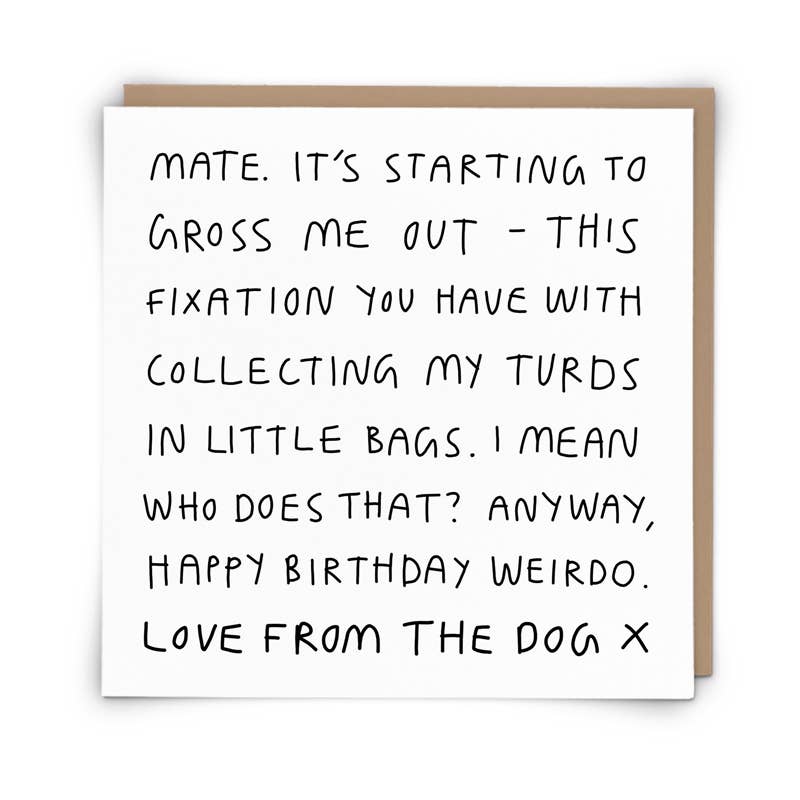 MATE. IT'S STARTING TO
GROSS ME OUT - THIS
FIXATION YOU HAVE WITH
COLLECTING MY TURDS
IN LITTLE BAGS. I MEAN
WHO DOES THAT? ANYWAY,
HAPPY BIRTHDAY WEIRDO.
LOVE FROM THE DOG X